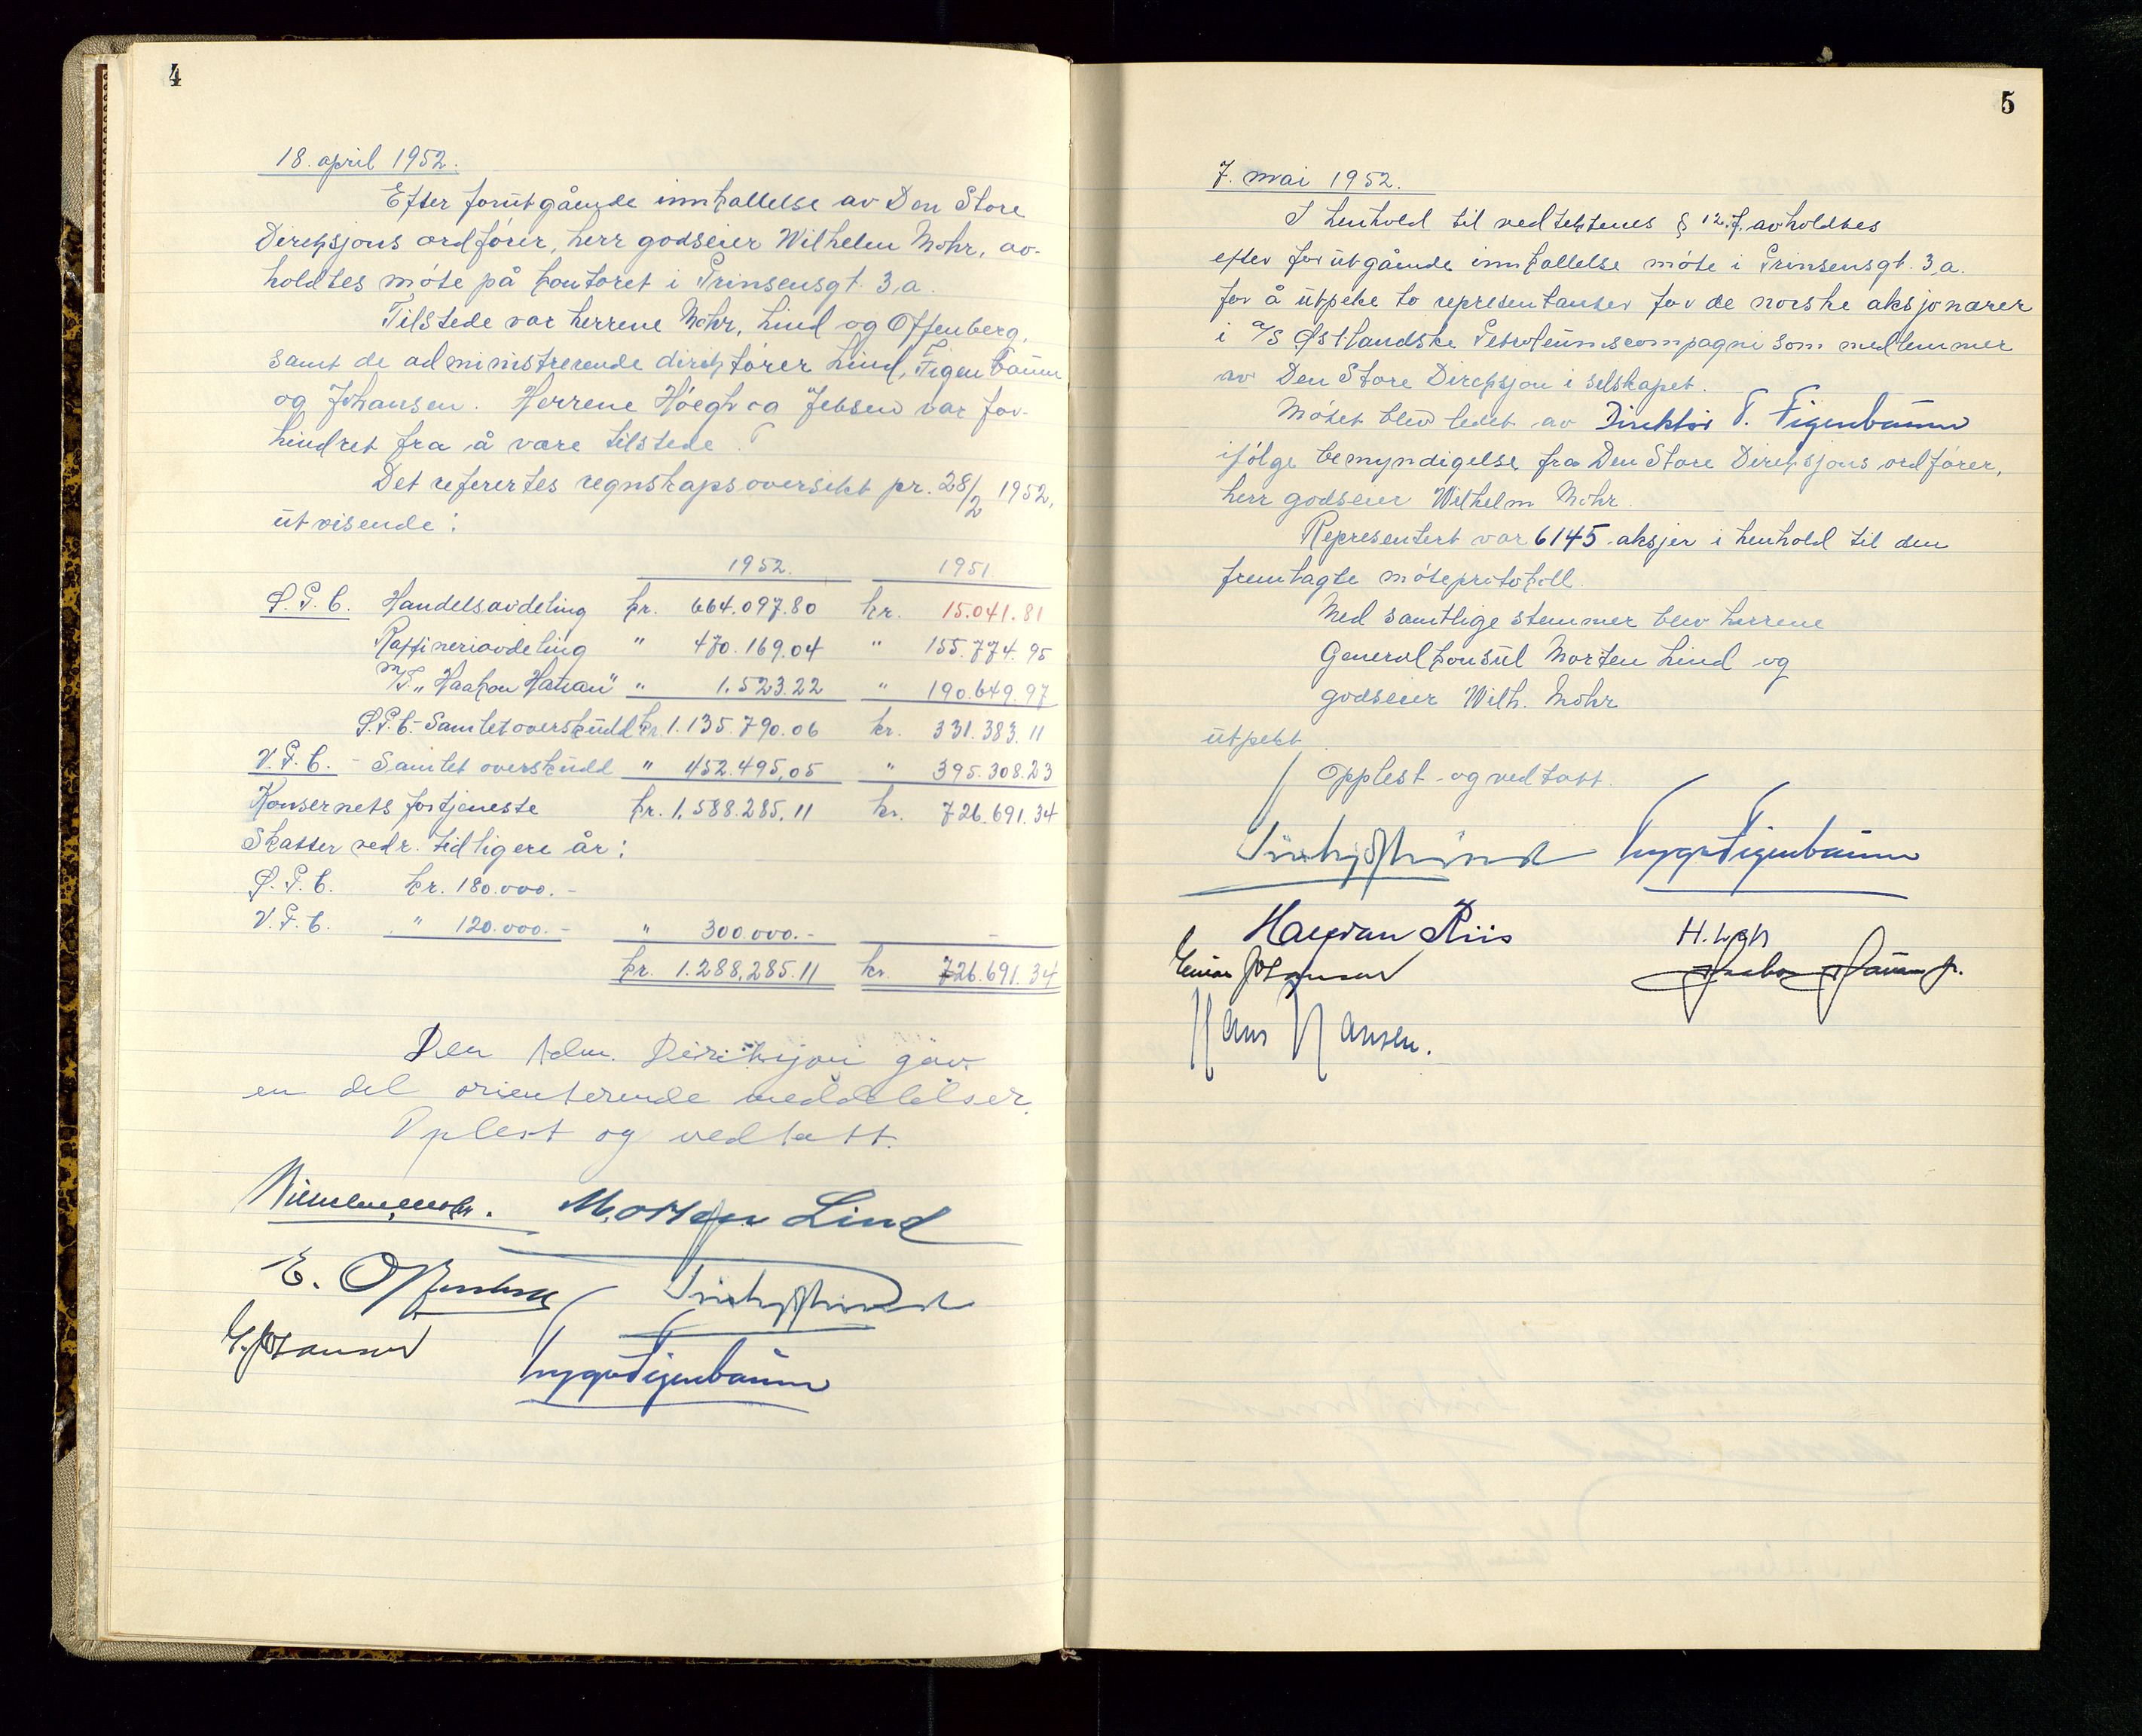 4
18. april 1952.
Efter forutgående innkallelse av Den Store
Direksjons ordfører, herr godseier Wilhelm Mohr, av-
holdtes møte på kontoret i Prinsensgt. 3,a.
Tilstede var herrene Mohr, Lind og Offenberg,
samt de administrerende direktører Lind, Figenbaum
og Johansen. Herrene Höegh og Jebsen var for-
hindret fra å være tilstede.
Det referertes regnskapsoversikt pr. 28/2 1952,
utvisende:
1952. 1951.
Ø.P.C. Handelsavdeling kr. 664.097.80 kr. 15.041.81
Raffineriavdeling " 470.169.04 " 155.774.95
M/T. "Haakon Hauan" " 1.523.22 " 190.649.97
Ø.P.C.- Samlet overskudd kr. 1.135.790.06 kr. 331.383.11
V.P.C. - Samlet overskudd " 452.495,05 " 395.308.23
Konsernets fortjeneste kr. 1.588.285,11 kr. 726.691.34
Skatter vedr. tidligere år:
Ø.P.C. kr. 180.000.-
V.P.C. " 120.000.- " 300.000.- -
kr. 1.288,285.11 kr. 726.691.34
Den Adm. Direksjon gav
en del orienterende meddelelser.
Oplest og vedtatt.
Wilhelm Mohr. Morten Lind
E. Offenberg
E. Johansen Trygve Figenbaum
5
7. mai 1952.
I henhold til vedtektenes § 12.f. avholdtes
efter forutgående innkallelse møte i Prinsensgt. 3,a.
for å utpeke to representanter for de norske aksjonærer
i A/S Østlandske Petroleumscompagni som medlemmer
av Den Store Direksjon i selskapet.
Møtet blev ledet av Direktør T. Figenbaum
ifølge bemyndigelse fra Den Store Direksjons ordfører,
herr godseier Wilhelm Mohr.
Representert var 6145 aksjer i henhold til den
fremlagte møteprotokoll.
Med samtlige stemmer blev herrene
Generalkonsul Morten Lind og
godseier Wilh. Mohr
utpekt.
Opplest og vedtatt.
Trygve Figenbaum
Halfdan Riis
Einar Johansen
Hans Hansen.